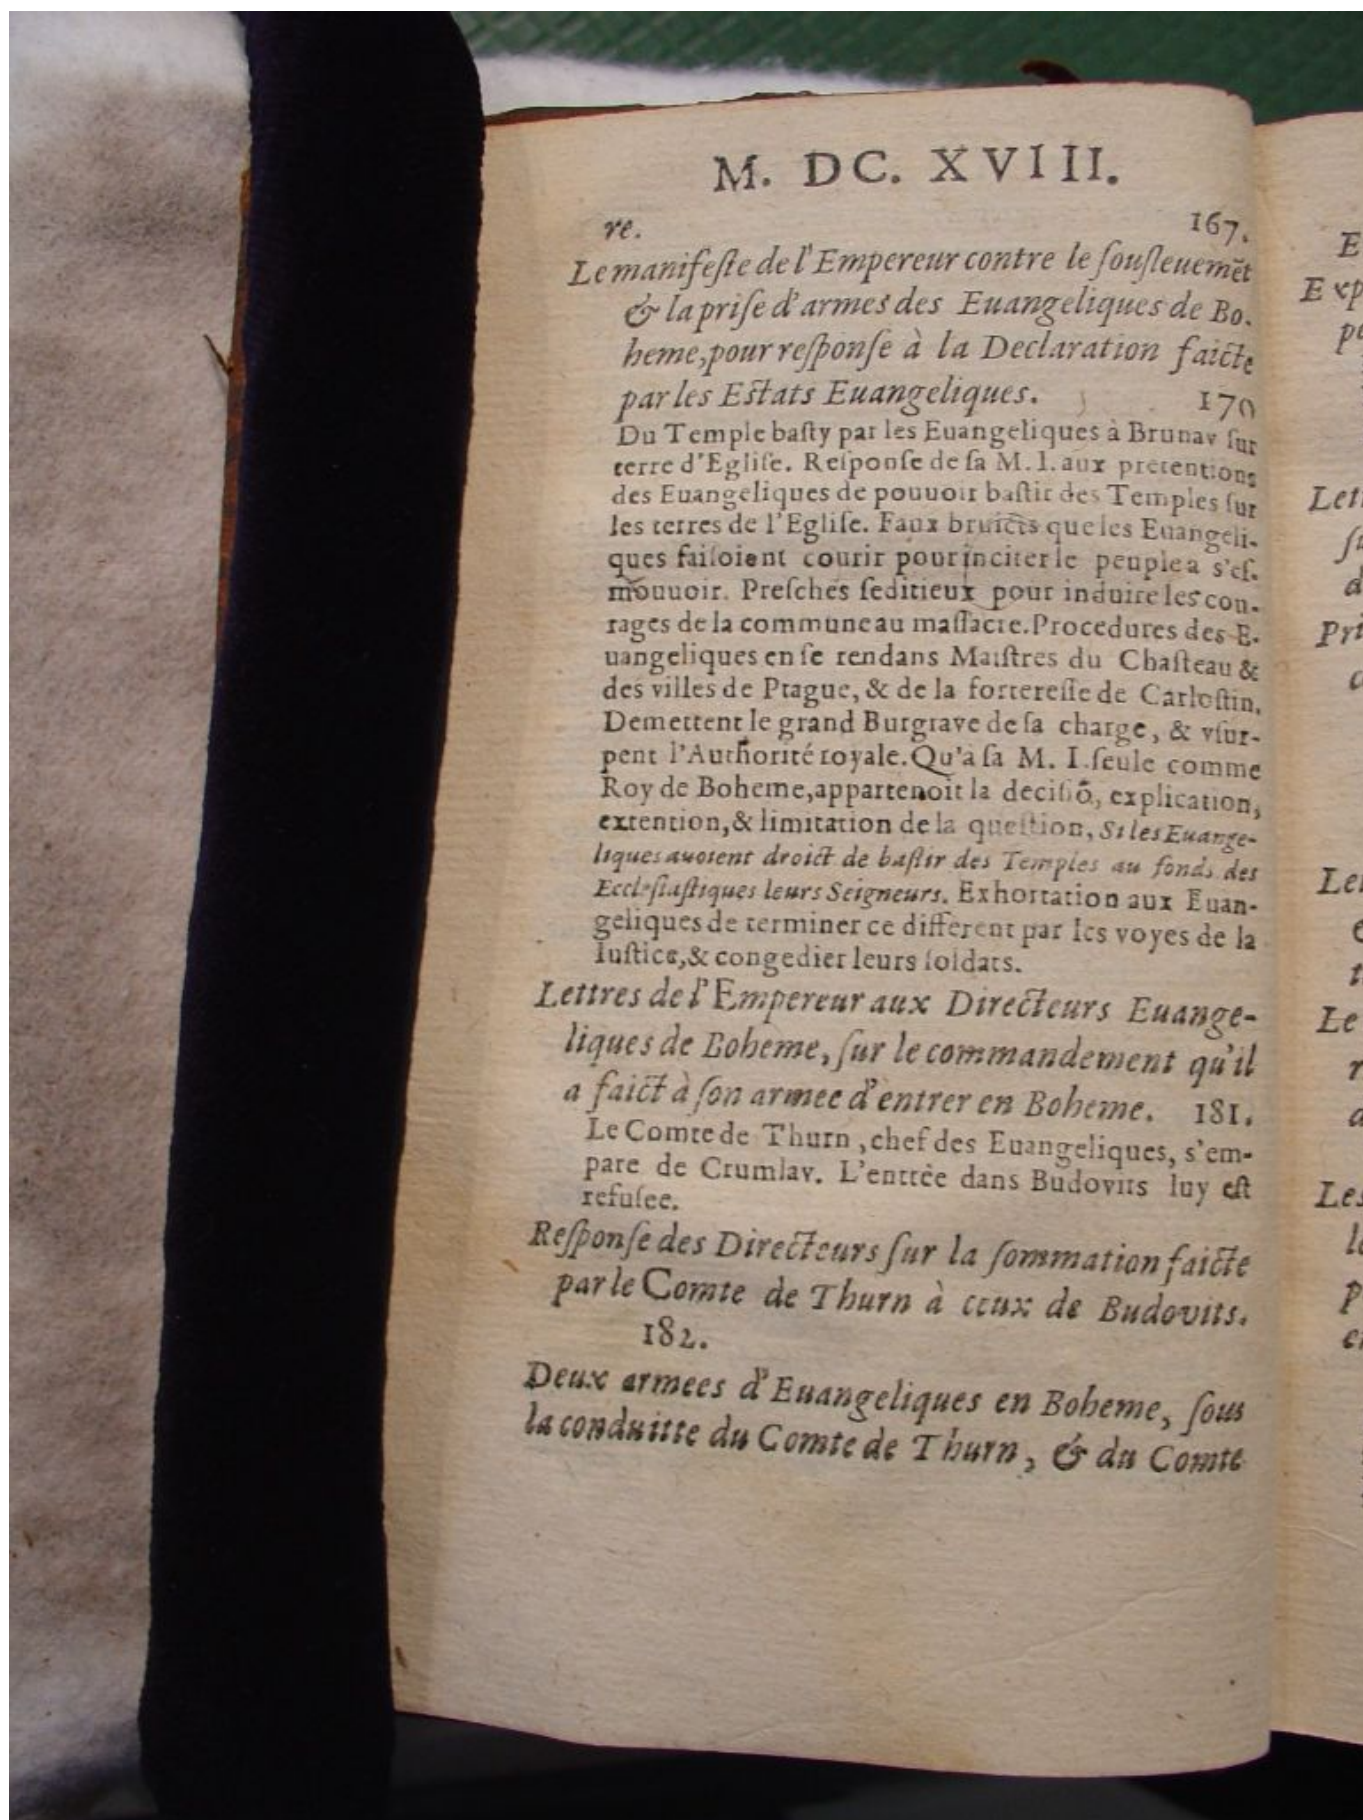 M. DC. XVIII.
re. 167.
Le manifeſte de l'Empereur contre le ſouſleuemēt
& la priſe d'armes des Euangeliques de Bo-
heme, pour reſponſe à la Declaration faicte
par les Eſtats Euangeliques. 170
Du Temple baſty par les Euangeliques à Brunav ſur
terre d'Egliſe. Reſponſe de ſa M. I. aux pretentions
des Euangeliques de pouuoir baſtir des Temples ſur
les terres de l'Egliſe. Faux bruicts que les Euangeli-
ques faiſoient courir pour inciter le peuple a s'eſ-
mouuoir. Preſches ſeditieux pour induire les cou-
rages de la commune au maſſacre. Procedures des E-
uangeliques en ſe rendans Maiſtres du Chaſteau &
des villes de Prague, & de la fortereſſe de Carloſtin.
Demettent le grand Burgrave de ſa charge, & vſur-
pent l'Authorité royale. Qu'à ſa M. I. ſeule comme
Roy de Boheme, appartenoit la deciſiō, explication,
extention, & limitation de la queſtion, Si les Euange-
liques auoient droict de baſtir des Temples au fonds des
Eccleſiaſtiques leurs Seigneurs. Exhortation aux Euan-
geliques de terminer ce different par les voyes de la
Iuſtice, & congedier leurs ſoldats.
Lettres de l'Empereur aux Directeurs Euange-
liques de Boheme, ſur le commandement qu'il
a faict à ſon armee d'entrer en Boheme. 181.
Le Comte de Thurn, chef des Euangeliques, s'em-
pare de Crumlav. L'entrée dans Budovits luy eſt
refuſee.
Reſponſe des Directeurs ſur la ſommation faicte
par le Comte de Thurn à ceux de Budovits.
182.
Deux armees d'Euangeliques en Boheme, ſous
la conduitte du Comte de Thurn, & du Comte